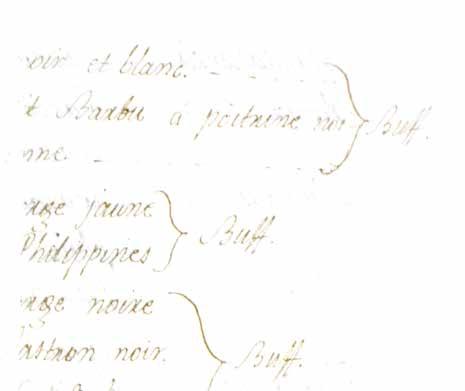 oir et blanc.
t Barbu à poitrine noi Buff.
me.
rge jaune
Philippines Buff.
rge noire
astron noir.
Buff.